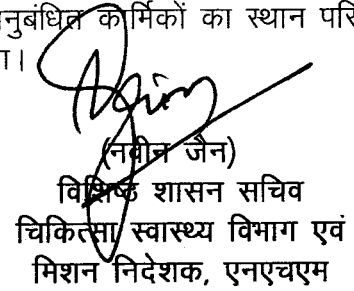 नुबंधित कार्मिकों का स्थान परि
ा।
(नवीन जैन)
विशिष्ठ शासन सचिव
चिकित्सा स्वास्थ्य विभाग एवं
मिशन निदेशक, एनएचएम